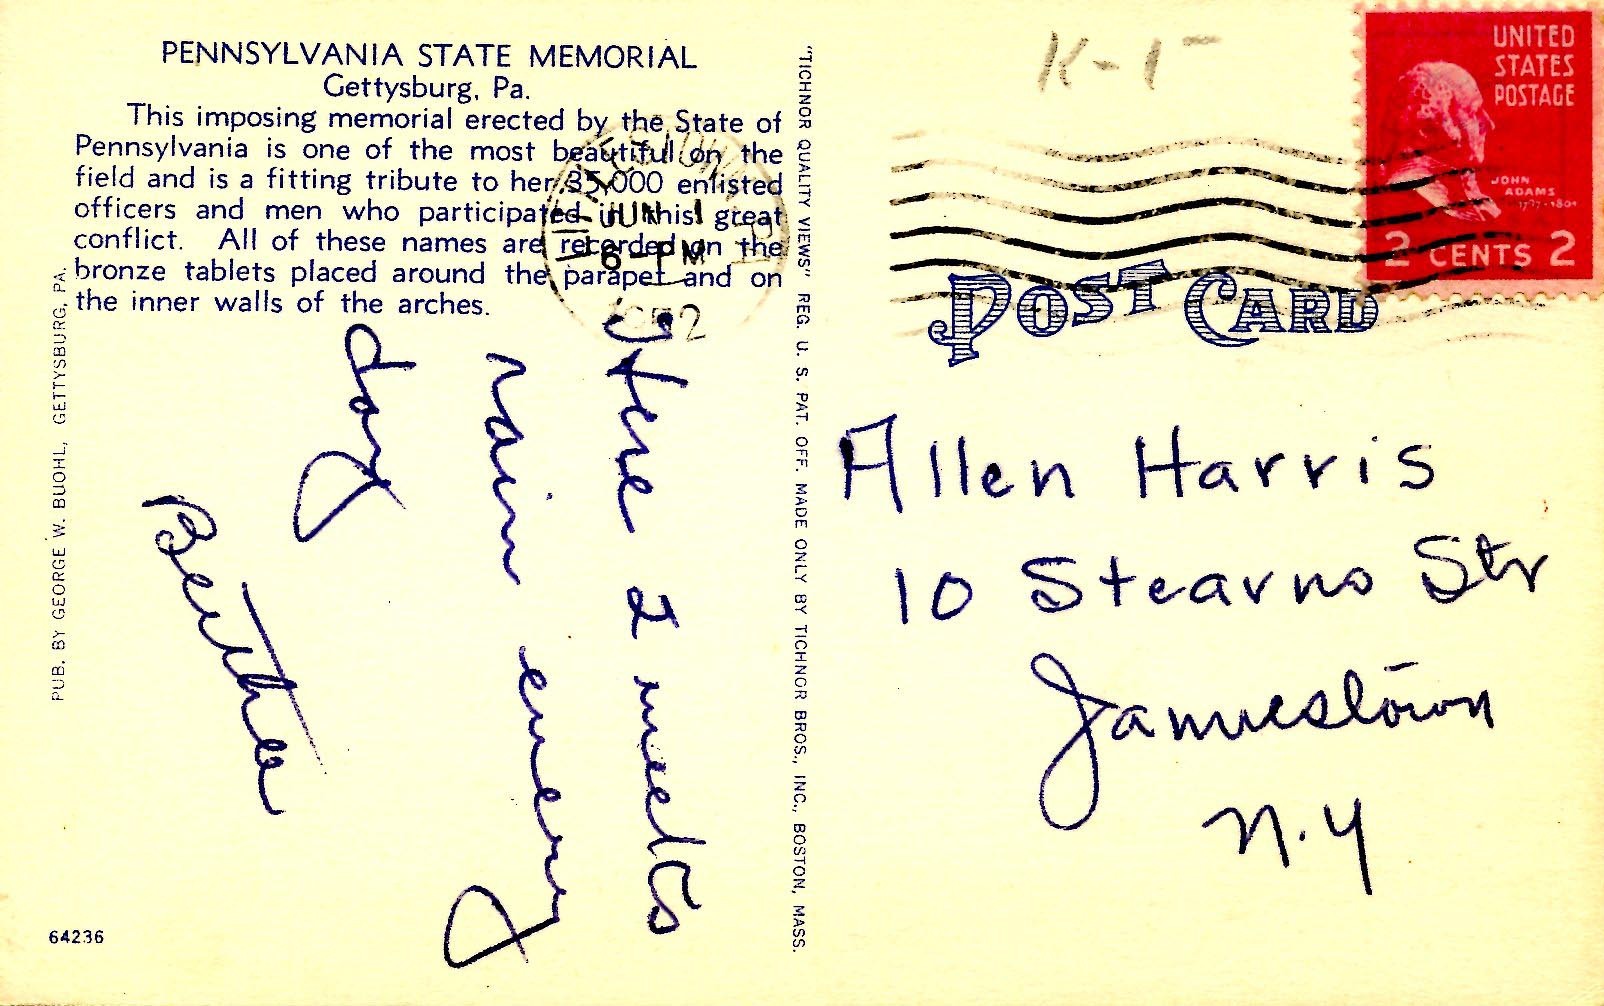 PENNSYLVANIA STATE MEMORIAL
Gettysburg, Pa.
This imposing memorial erected by the State of
Pennsylvania is one of the most beautiful on the
field and is a fitting tribute to her 35,000 enlisted
officers and men who participated in this great
conflict. All of these names are recorded on the
bronze tablets placed around the parapet and on
the inner walls of the arches.
JUN 1
6 - PM
Here 2 weeks
rain every
day
Bertha
PUB. BY GEORGE W. BUOHL, GETTYSBURG, PA.
64236
"TICHNOR QUALITY VIEWS" REG. U. S. PAT. OFF. MADE ONLY BY TICHNOR BROS., INC., BOSTON, MASS.
K-1
UNITED
STATES
POSTAGE
JOHN
ADAMS
1797-1801
2 CENTS 2
POST CARD
Allen Harris
10 Stearns Str
Jamestown
N.Y